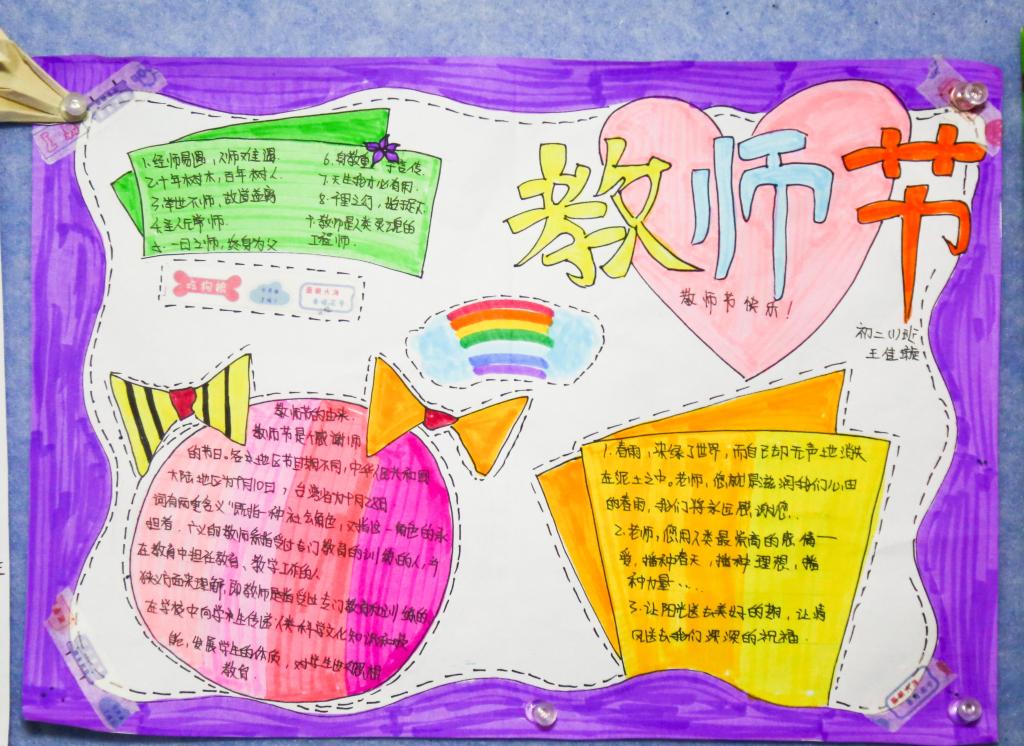 教师节
教师节快乐!
初二(1)班
王佳璇
1.经师易遇,人师难遇.
2.十年树木,百年树人.
3.学出不师,故道益明
4.圣人无常师.
5.一日之师,终身为父
6.身教重于言传.
7.天生我才必有用.
8.千里之行,始于足下.
9.教师是人类灵魂的
工程师.
教师节的由来.
教师节是个感谢师
的节日。各地区节日期不同,中华人民共和国
大陆地区为9月10日,台湾为9月28日
词有两重含义,既指一种社会角色,又指这一角色的承
担者。广义的教师系指受过专门教育的训练的人,
在教育中担任教育、教学工作的人
狭义方面来理解,即教师是指受过专门教育和训练的
在学校中向学生传递人类科学文化知识和技
能,发展学生的体质,对学生进行
教育.
1.春雨,染绿了世界,而自己却无声地消失
在泥土之中。老师,您就是滋润我们心田
的春雨,我们将永远感谢您.
2.老师,您用人类最崇高的感情——
爱,播种春天,播种理想,播
种力量...
3.让阳光送去美好的期,让清
风送去我们深深的祝福.